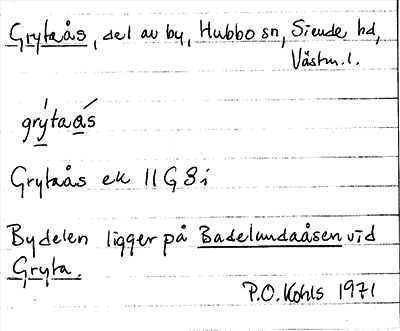 Grytaås, del av by, Hubbo sn, Siende hd,
Västm. l.
grýtaǻs
Grytaås ek 11G 8i
Bydelen ligger på Badelundaåsen vid
Gryta.
P.O. Kohls 1971